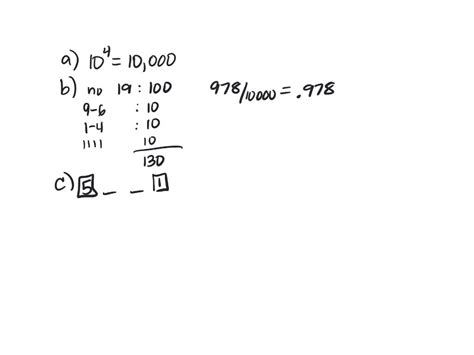 a) 10⁴ = 10,000
b) no 19 : 100 978/10000 = .978
9-6 : 10
1-4 : 10
1111 10
130
c) 5 _ _ 1